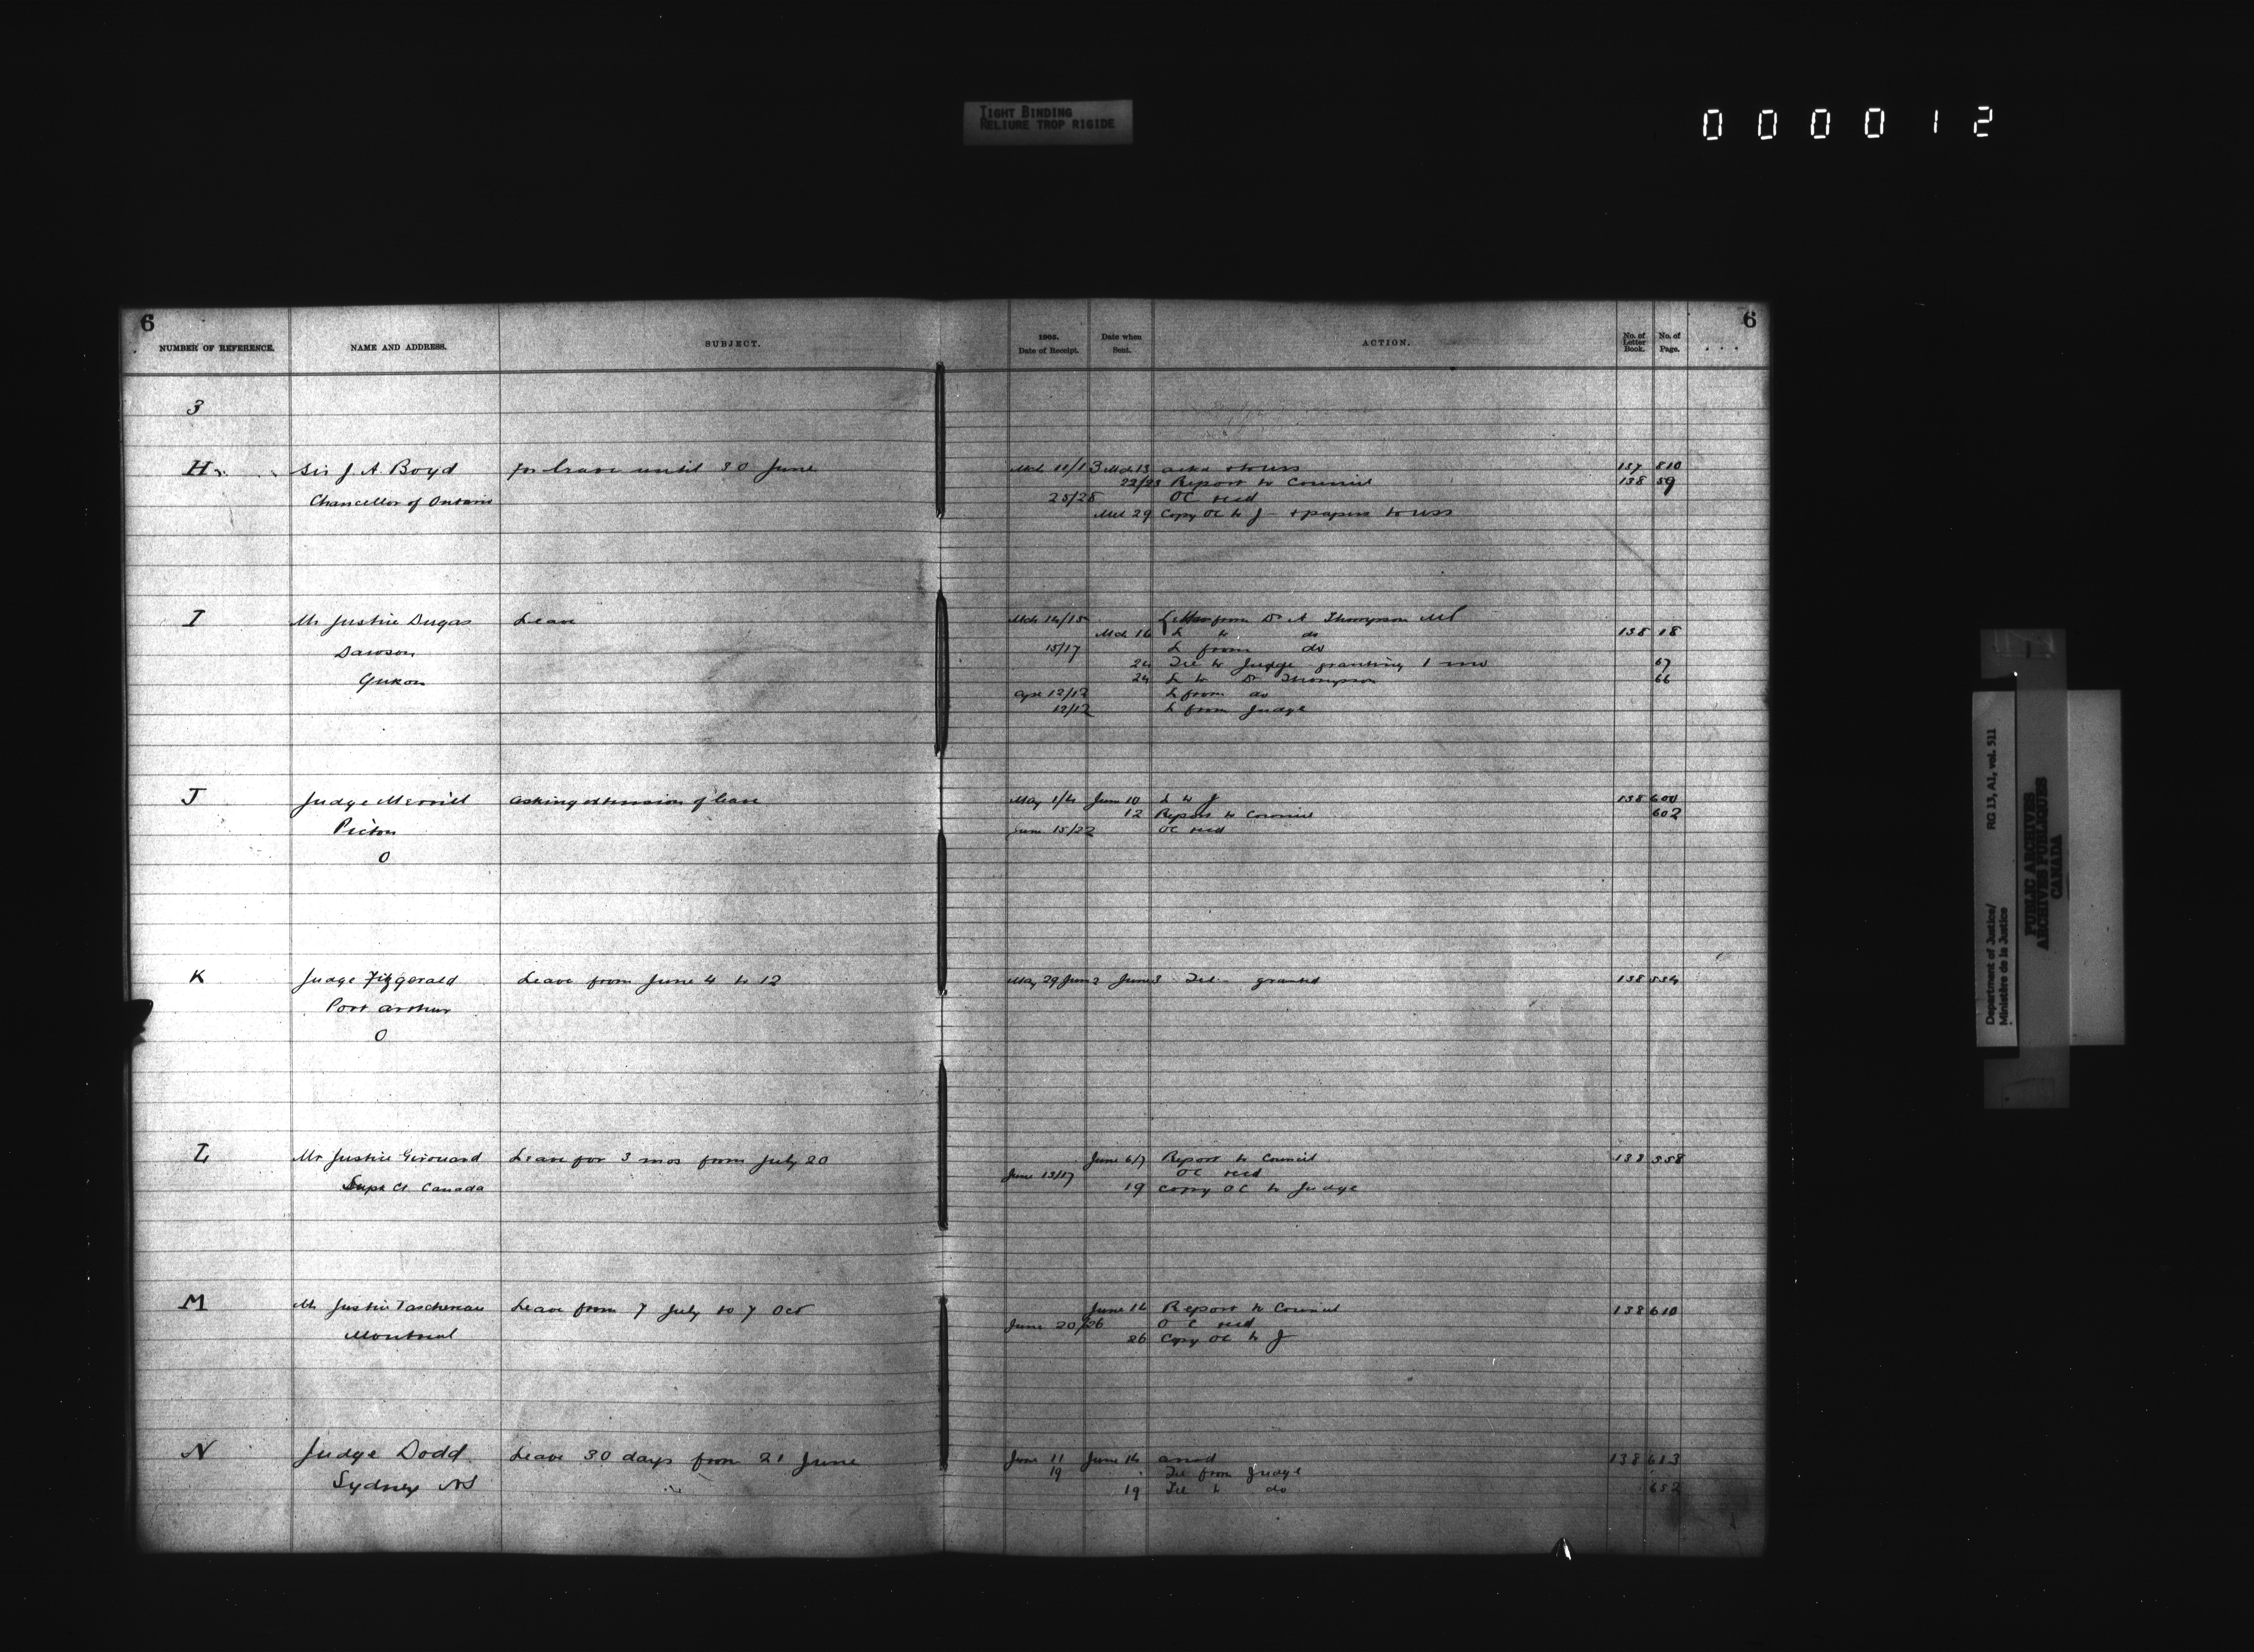 TIGHT BINDING
RELIURE TROP RIGIDE
000012
6
6
NUMBER OF REFERENCE. NAME AND ADDRESS. SUBJECT. 1905. Date of Receipt. Date when Sent. ACTION. No. of Letter Book. No. of Page.
3
H Sir J. A. Boyd for leave until 30 June Mch 11/13 Mch 13 ackd + to uss 137 810
22/23 Report to Council 138 59
Chancellor of Ontario 25/28 OC recd
Mch 29 Copy OC to J + papers to uss
I Mr Justice Dugas Leave Mch 14/15 Letter from Dr A Thompson MP
Mch 16 L to do 138 18
Dawson 15/17 L from do
24 Tel to Judge granting 1 mo 67
Yukon 24 L to Dr Thompson 66
Apr 12/12 L from do
12/12 L from Judge
J Judge Merrill asking extension of leave May 1/4 June 10 L to J 138 600
12 Report to Council 602
Picton June 15/22 OC recd
O
K Judge Fitzgerald Leave from June 4 to 12 May 29 June 2 June 3 Tel granted 138 534
Port Arthur
O
L Mr Justice Girouard Leave for 3 mos from July 20 June 6/7 Report to Council 138 558
June 13/17 OC recd
Supr Ct Canada 19 Copy OC to Judge
M Mr Justice Taschereau Leave from 7 July to 7 Oct June 14 Report to Council 138 610
June 20/26 OC recd
Montreal 26 Copy OC to J
N Judge Dodd Leave 30 days from 21 June June 11 June 14 138 613
19 Tel from Judge
Sydney NS 19 Tel to do 652
RG 13, A1, vol. 511
Department of Justice/
Ministère de la Justice
PUBLIC ARCHIVES
ARCHIVES PUBLIQUES
CANADA